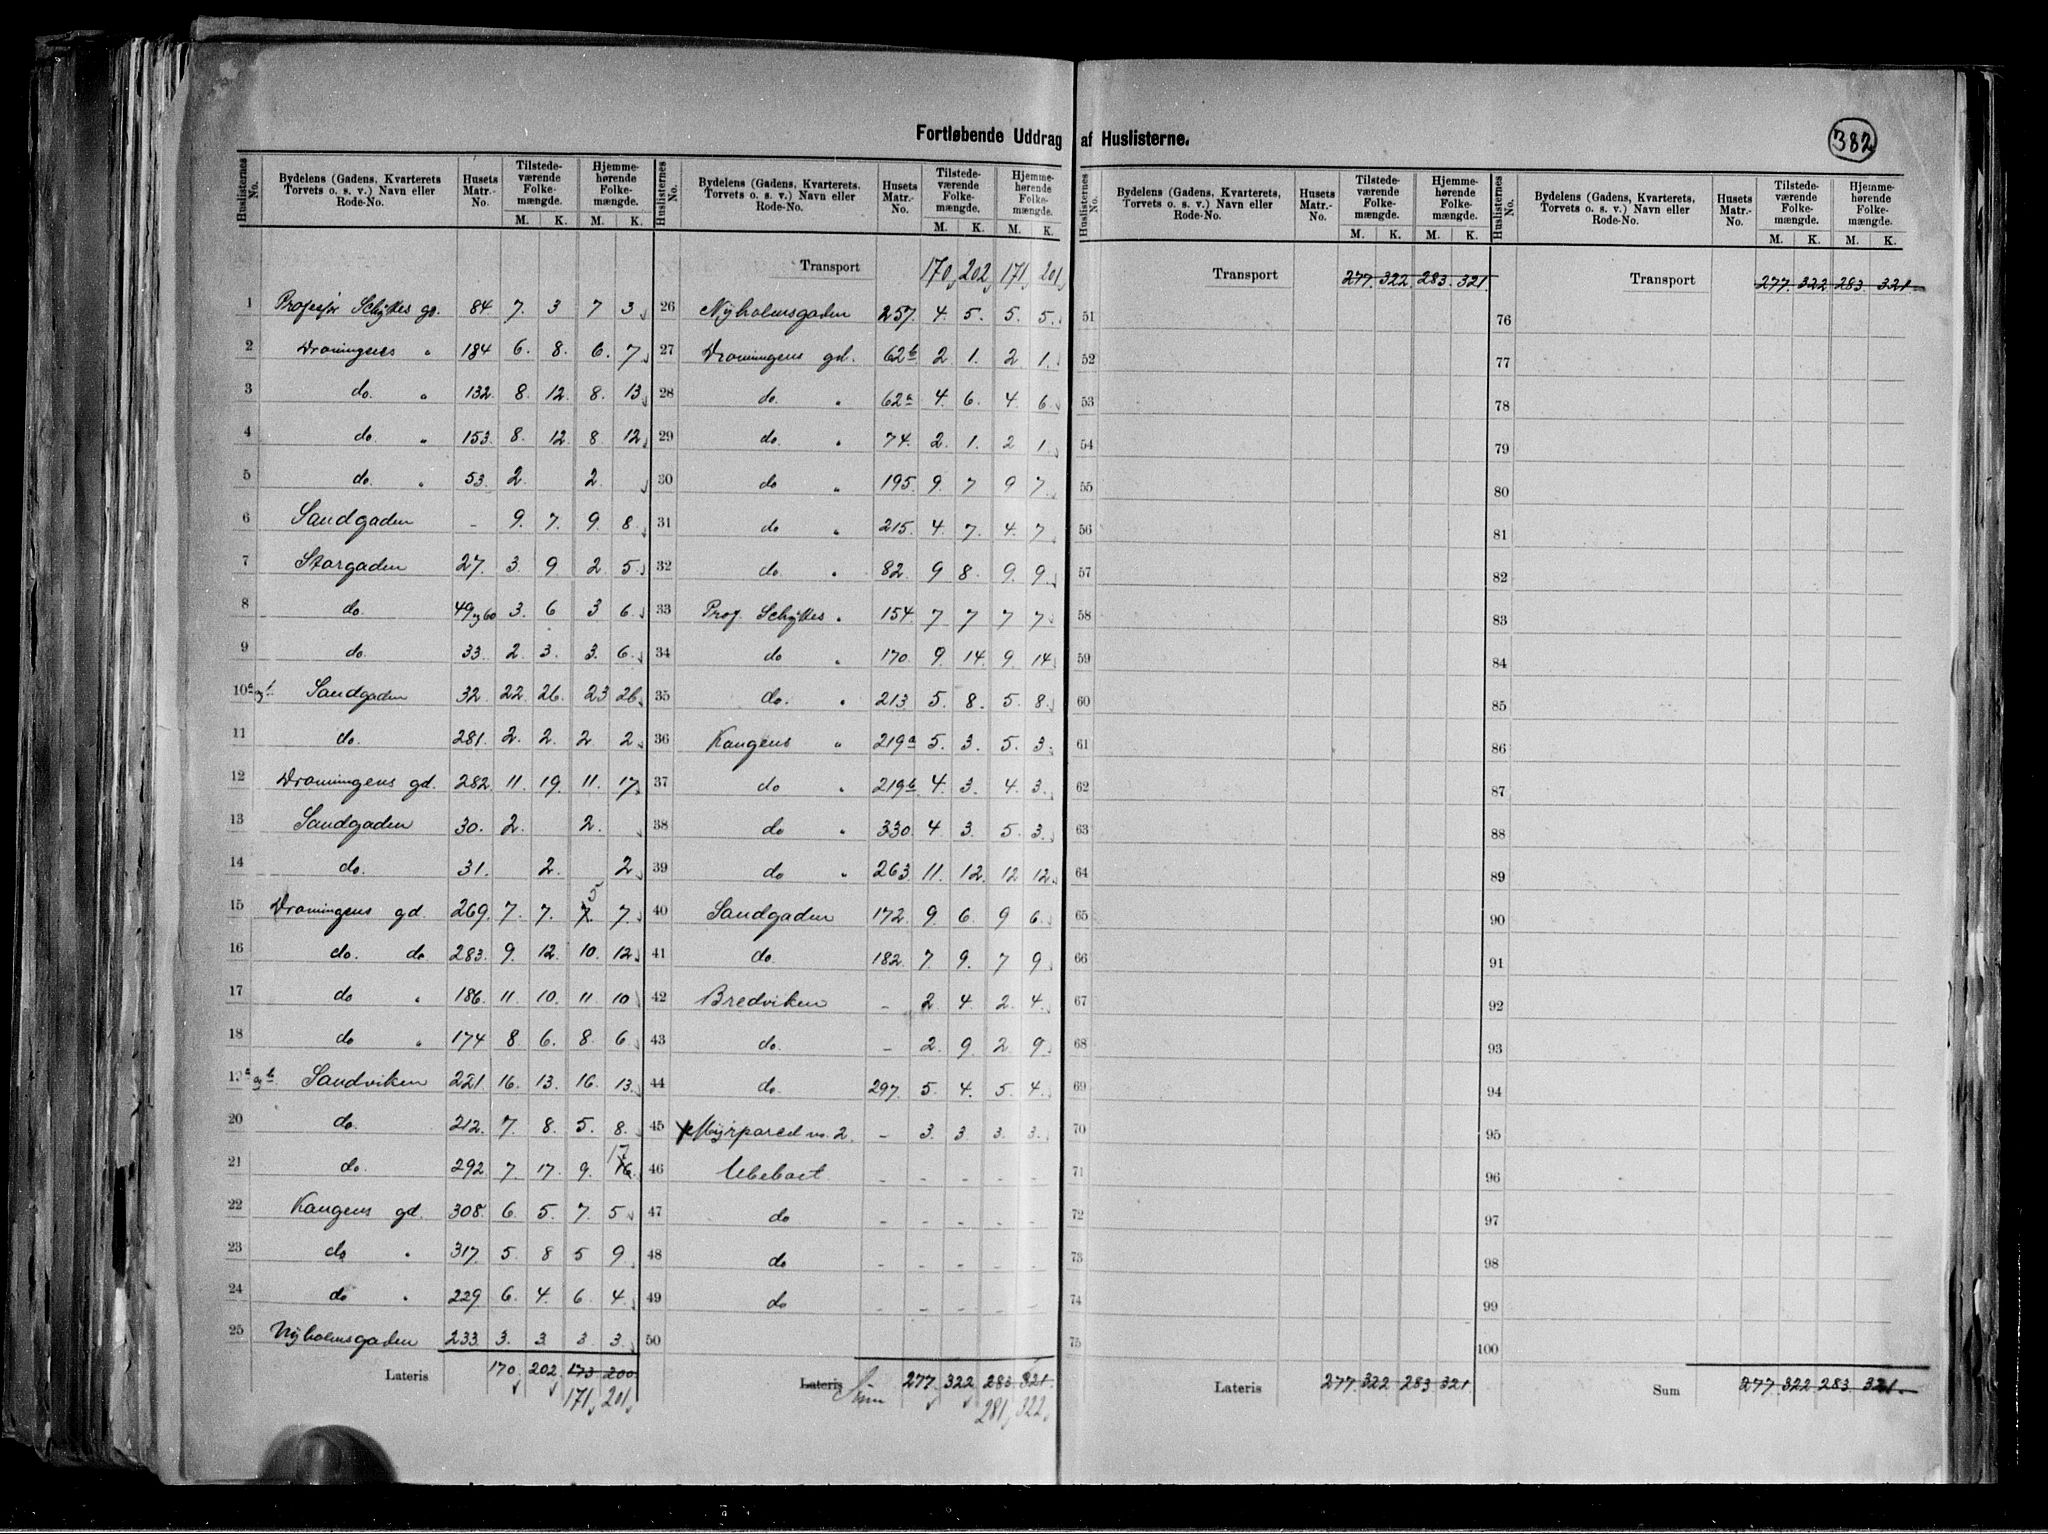 Fortløbende Uddrag af Huslisterne.
382
Huslisternes No. Bydelens (Gadens, Kvarterets, Torvets o. s. v.) Navn eller Rode-No. Husets Matr.-No. Tilstedeværende Folkemængde. M. K. Hjemmehørende Folkemængde. M. K.
1 Professor Schyttes gd. 84 7. 3 7 3
2 Dronningens " 184 6. 8. 6. 7
3 do. " 132. 8. 12. 8. 13
4 do. " 153. 8. 12 8. 12
5 do. " 53. 2. 2.
6 Sandgaden - 9. 7. 9. 8
7 Storgaden 27. 3. 9 2. 5
8 do. 49 og 60 3. 6 3 6.
9 do. 33. 2. 3. 3. 6.
10a og b. Sandgaden 32. 22. 26. 23 26.
11 do. 281. 2. 2. 2 2.
12 Dronningens gd. 282. 11. 19. 11. 17.
13 Sandgaden 30. 2. 2.
14 do. 31. 2. 2
15 Dronningens gd. 269. 7. 7. 7. 5 7.
16 do. do 283. 9. 12. 10. 12
17 do " 186. 11. 10. 11. 10
18 do " 174 8. 6. 8. 6
19a og b. Sandviken 221 16. 13. 16. 13.
20 do. 212. 7. 8. 5. 8.
21 do. 292 7. 17. 9. 16. 17
22 Kongens gd. 308. 6. 5. 7. 5
23 do " 317. 5. 8 5 9
24 do " 229. 6. 4. 6. 4.
25 Nyholmsgaden 233. 3. 3. 3 3.
Lateris 170 202 173 200
171 201
Huslisternes No. Bydelens (Gadens, Kvarterets, Torvets o. s. v.) Navn eller Rode-No. Husets Matr.-No. Tilstedeværende Folkemængde. M. K. Hjemmehørende Folkemængde. M. K.
Transport 170 202 171 201
26 Nyholmsgaden 257. 4. 5. 5. 5.
27 Dronningens gd. 62b 2 1. 2 1.
28 do. " 62a 4. 6. 4. 6.
29 do. " 74. 2. 1. 2 1.
30 do " 195. 9. 7 9 7.
31 do " 215. 4. 7. 4. 7
32 do. " 82. 9 8. 9. 9.
33 Prof. Schyttes " 154. 7 7 7 7
34 do " 170. 9. 14. 9. 14.
35 do. " 213 5. 8. 5. 8.
36 Kongens " 219a 5. 3. 5. 3.
37 do " 219b 4. 3. 4. 3.
38 do " 330. 4. 3. 5. 3.
39 do " 263. 11. 12. 12 12.
40 Sandgaden 172. 9. 6. 9 6.
41 do. 182. 7. 9. 7 9
42 Bredviken - 2 4. 2. 4.
43 do. - 2. 9 2. 9.
44 do. 297. 5. 4. 5 4.
45 Myrparcel no. 2. - 3. 3 3. 3.
46 Ubeboet. - - - - -
47 do - - - - -
48 do - - - - -
49 do - - - - -
50
Lateris Sum 277. 322. 283. 321.
281 322
Huslisternes No. Bydelens (Gadens, Kvarterets, Torvets o. s. v.) Navn eller Rode-No. Husets Matr.-No. Tilstedeværende Folkemængde. M. K. Hjemmehørende Folkemængde. M. K.
Transport 277. 322. 283. 321.
51
52
53
54
55
56
57
58
59
60
61
62
63
64
65
66
67
68
69
70
71
72
73
74
75
Lateris 277. 322 283 321.
Huslisternes No. Bydelens (Gadens, Kvarterets, Torvets o. s. v.) Navn eller Rode-No. Husets Matr.-No. Tilstedeværende Folkemængde. M. K. Hjemmehørende Folkemængde. M. K.
Transport 277. 322 283 321.
76
77
78
79
80
81
82
83
84
85
86
87
88
89
90
91
92
93
94
95
96
97
98
99
100
Sum 277. 322. 283. 321.